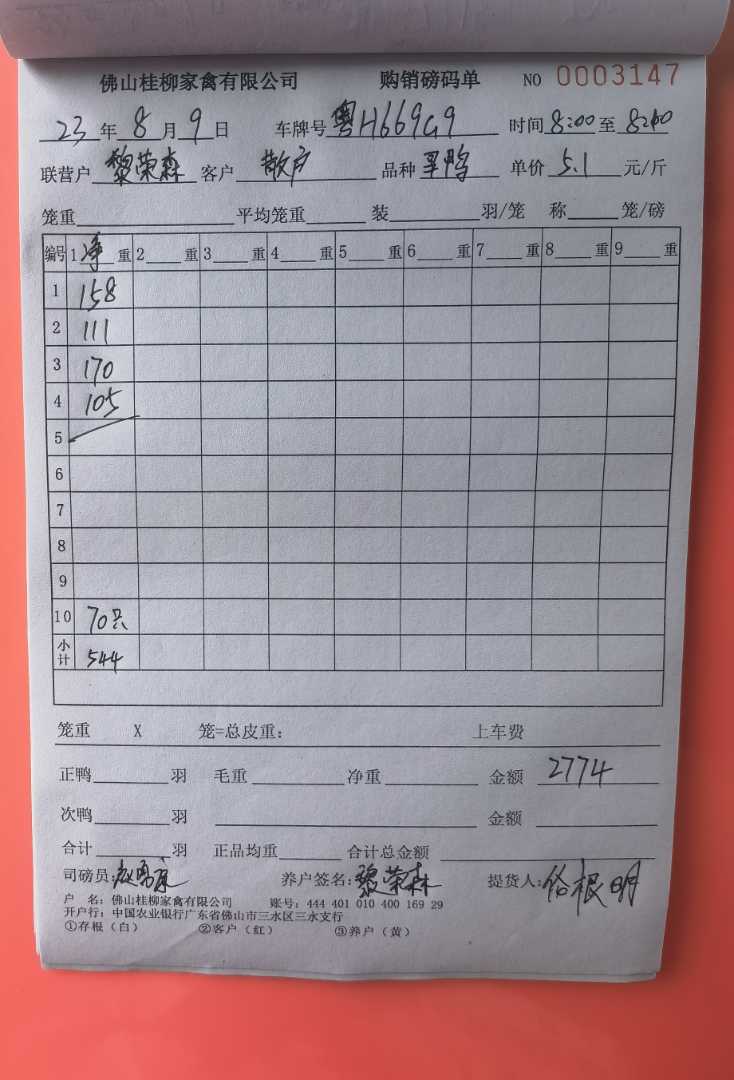 佛山桂柳家禽有限公司 购销磅码单 NO 0003147
23年8月9日 车牌号粤H669G9 时间8:00至8:40
联营户黎荣森 客户散户 品种旱鸭 单价5.1元/斤
笼重 平均笼重 装 羽/笼 称 笼/磅
编号 1净重 2 重 3 重 4 重 5 重 6 重 7 重 8 重 9 重
1 158
2 111
3 170
4 105
5
6
7
8
9
10 70只
小计 544
笼重 X 笼=总皮重： 上车费
正鸭 羽 毛重 净重 金额 2774
次鸭 羽 金额
合计 羽 正品均重 合计总金额
司磅员： 养户签名：黎荣森 提货人：根明
户 名：佛山桂柳家禽有限公司 账号：444 401 010 400 169 29
开户行：中国农业银行广东省佛山市三水区三水支行
①存根（白） ②客户（红） ③养户（黄）